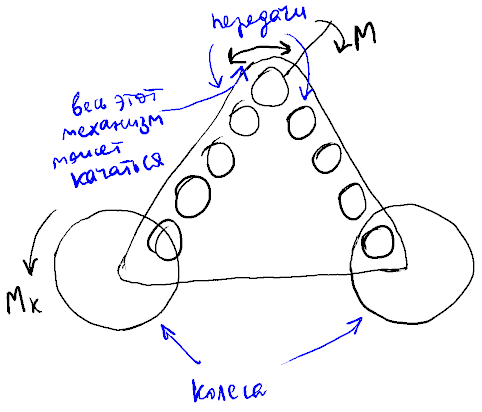 передачи
M
весь этот
механизм
может
качаться
Mк
колеса